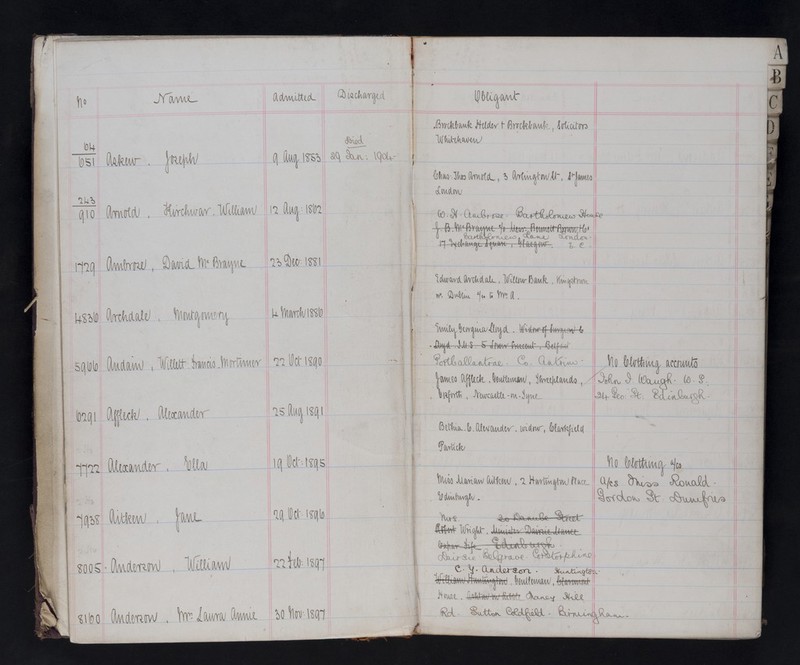 No Name Admitted Discharged Obligant
A
B
C
D
Brockbank Helder & Brockbank, Solicitors
Whitehaven
64
651 Askew, Joseph 9 Aug 1853 Died 29 Jan:
Chas. Thos Arnold, 3 Arlington St, St James
London
243
910 Arnold, Kirchwar, William 12 Aug 1862
W. H. Ambrose Bartholomew House
Bartholomew Lane London
E. C.
1729 Ambrose, David McBrayne 23 Dec 1881
Edward Archdale, Willow Bank, Kingstown
nr. Dublin
4836 Archdale, Montgomery 4 March 1886
Emily Georgina Lloyd. Widow of Surgeon
Lloyd I.M.S. Belfast
Portballantrae. Co. Antrim
5966 Andain, Willett Francis Mortimer 22 Oct 1890 No Clothing accounts
James Affleck, Gentleman, Shreeplands,
Gosforth, Newcastle-on-Tyne
John J. Waugh W. S.
24 Geo St. Edinburgh
6291 Affleck, Alexander 25 Aug 1891
Bethia. C. Alexander, widow, Clarkfield
Partick
7722 Alexander, Ella 19 Oct 1895 No Clothing a/c
Miss Marian Aitken, 2 Hartington Place
Edinburgh.
a/cs Miss Ronald
Gordon St Dumfries
7938 Aitken, Jane 29 Oct 1896
Mrs.
Wright, Minister Dairsie Manse
Cupar Fife Edinburgh
Dairsie Belgrave Corstorphine
8005 Anderson, William 22 Feb 1897
C. Y. Anderson. Huntington
William Huntington, Gentleman,
House, Oxney Hill
8160 Anderson, Mrs Laura Annie 30 Nov 1897
Rd Sutton Coldfield Birmingham